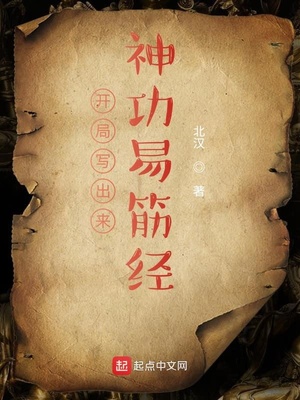 开局写出来
神功易筋经
北汉 ◎ 著
起 起点中文网